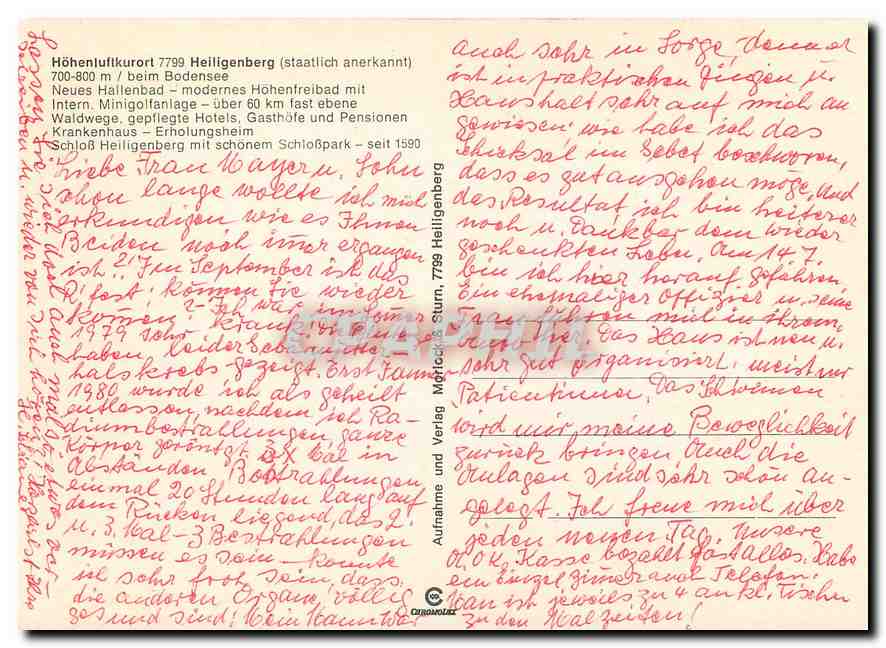 Höhenluftkurort 7799 Heiligenberg (staatlich anerkannt)
700-800 m / beim Bodensee
Neues Hallenbad – modernes Höhenfreibad mit
Intern. Minigolfanlage – über 60 km fast ebene
Waldwege, gepflegte Hotels, Gasthöfe und Pensionen
Krankenhaus – Erholungsheim
Schloß Heiligenberg mit schönem Schloßpark – seit 1590
Liebe Frau Mayer u. Sohn
schon lange wollte ich mich
erkundigen wie es Ihnen
Beiden noch imer ergangen
ist?! Im September ist das
können Sie wieder
komen? Ich war im
1979 sehr krank
haben leider Gebärmutter-
halskrebs gezeigt. Erst Januar
1980 wurde ich als geheilt
entlassen, nachdem ich Ra-
diumbestrahlungen, ganze
Körper geröntgt, 3x Mal in
Abständen Bestrahlungen,
einmal 20 Stunden lang auf
dem Rücken liegend, das 2.
u. 3. Mal – 3 Bestrahlungen
müssen es sein – konnte
ich sehr froh sein, dass
die anderen Organe völlig
gesund sind! Mein Mann war
auch sehr in Sorge, denn er
ist in praktischen Dingen u.
Haushalt sehr auf mich an
gewiesen wie habe ich das
Schicksal im Gebet beschworen,
dass es gut ausgehen möge. Und
das Resultat, ich bin heiterer
noch u. Dankbar dem wieder
geschenkten Leben. Am 14.7.
bin ich hier herauf gefahren.
Ein ehemaliger Offizier u. seine
Frau fuhren mich in ihrem
Auto her. Das Haus ist neu u.
sehr gut organisiert, meist nur
Patientinnen. Das Schwimen
wird mir meine Beweglichkeit
zurück bringen. Auch die
Anlagen sind sehr schön an-
gelegt. Ich freue mich über
jeden neuen Tag. Unsere
A.O.K. Kasse bezahlt fast alles. Habe
ein Einzelzimer auch Telefon.
Man ist jeweils zu 4 an kl. Tischen
zu den Malzeiten!
Lassen Sie sich doch auch mal sie etwas ver-
schreiben u. wieder von sich hören! Herzlichst Ihre
Morlock & Sturn, 7799 Heiligenberg
Aufnahme und Verlag
CHROMOLUX
CPAPHIL